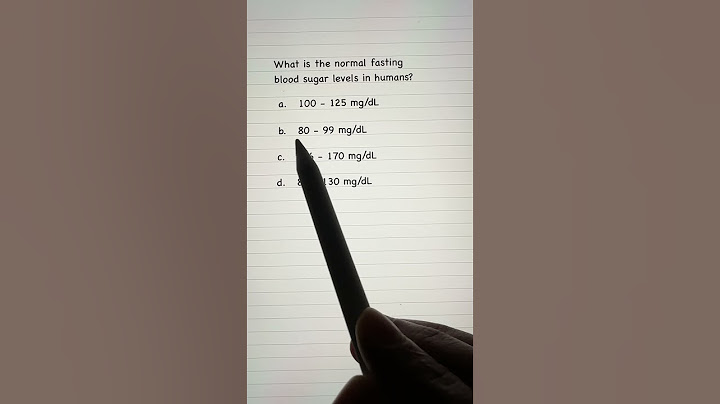 What is the normal fasting
blood sugar levels in humans?
a. 100 - 125 mg/dL
b. 80 - 99 mg/dL
c. - 170 mg/dL
d. 130 mg/dL